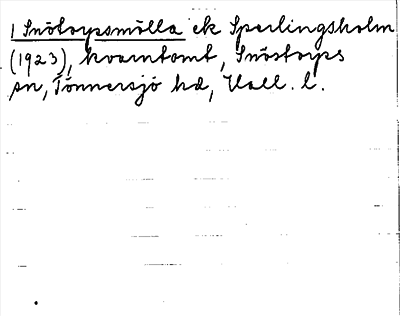 1 Snötorpsmölla ek Sperlingsholm
(1923), kvarntomt, Snöstorps
sn, Tönnersjö hd, Hall. l.